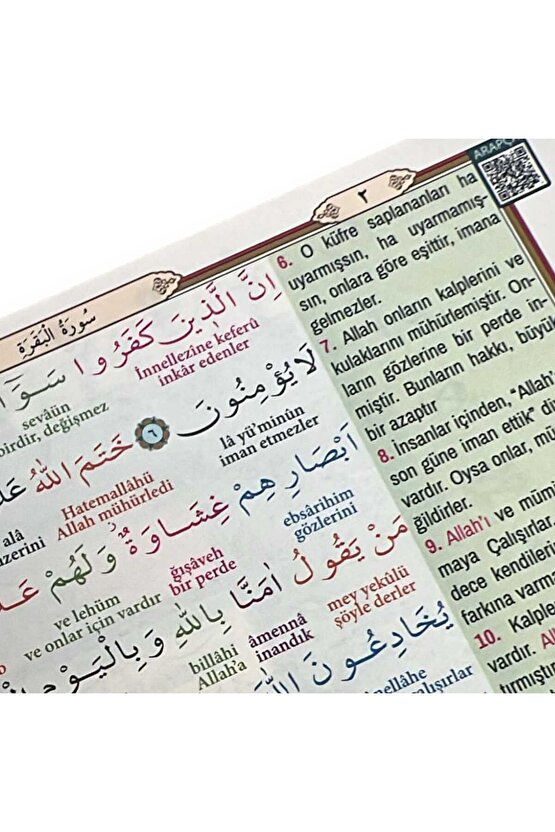 ARAPÇA
٢
سُورَةُ الْبَقَرَةِ
اِنَّ الَّذ۪ينَ كَفَرُوا سَوَٓا
İnnellezine keferû
inkâr edenler
sevâün
birdir, değişmez
لَا يُؤْمِنُونَ ﴿٦﴾ خَتَمَ اللّٰهُ عَلٰ
lâ yü'minûn
iman etmezler
Hatemallâhü
Allah mühürledi
alâ
üzerini
اَبْصَارِهِمْ غِشَاوَةٌ وَلَهُمْ عَذَ
ebsârihim
gözlerini
ğışâveh
bir perde
ve lehüm
ve onlar için vardır
مَنْ يَقُولُ اٰمَنَّا بِاللّٰهِ وَبِالْيَوْمِ
mey yekûlü
şöyle derler
âmennâ
inandık
billâhi
Allah'a
يُخَادِعُونَ اللّٰهَ
6. O küfre saplananları ha
uyarmışsın, ha uyarmamış-
sın, onlara göre eşittir, imana
gelmezler.
7. Allah onların kalplerini ve
kulaklarını mühürlemiştir. On-
ların gözlerine bir perde in-
miştir. Bunların hakkı, büyü
bir azaptır
8. İnsanlar içinden, "Allah'
son güne iman ettik" di
vardır. Oysa onlar, mü
ğildirler.
9. Allah'ı ve mümi
maya Çalışırlar
dece kendileri
farkına varm
10. Kalple
vardır. Al
tırmıştır